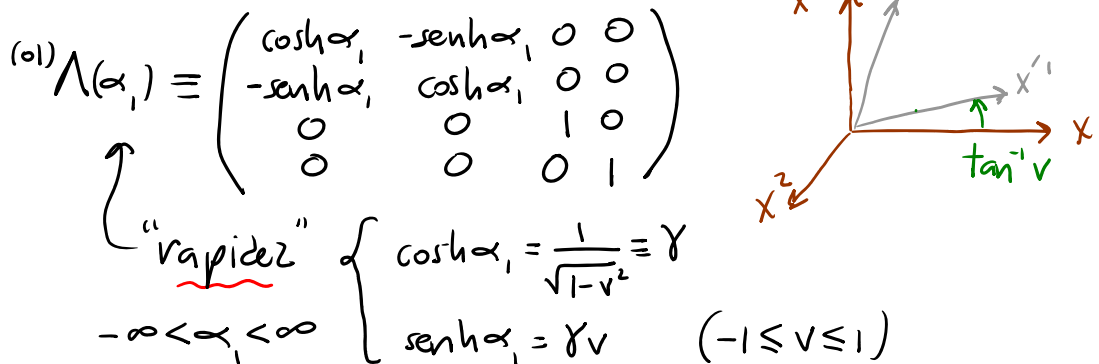 (01) Λ(α₁) ≡ ( coshα₁ -senhα₁ 0 0
-senhα₁ coshα₁ 0 0
0 0 1 0
0 0 0 1 )
x x'¹ x
tan⁻¹ v
x²
"rapidez" { coshα₁ = 1/√(1-v²) ≡ γ
-∞ < α₁ < ∞ senhα₁ = γv (-1 ≤ v ≤ 1)